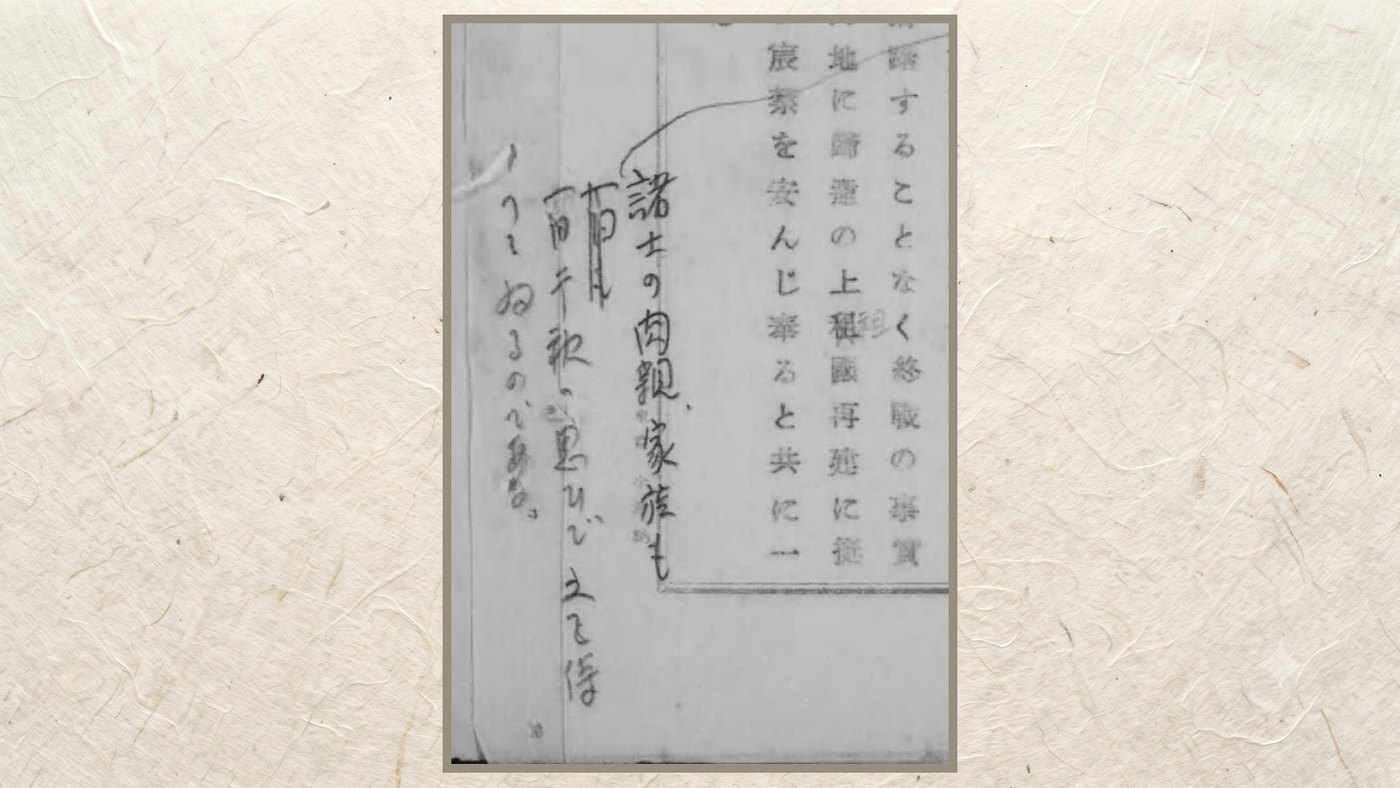 躇することなく終戰の事實
地に歸還の上祖國再建に挺
宸襟を安んじ奉ると共に一
諸士の肉親、家族も
千秋の思ひで之を待
つてゐるのである。